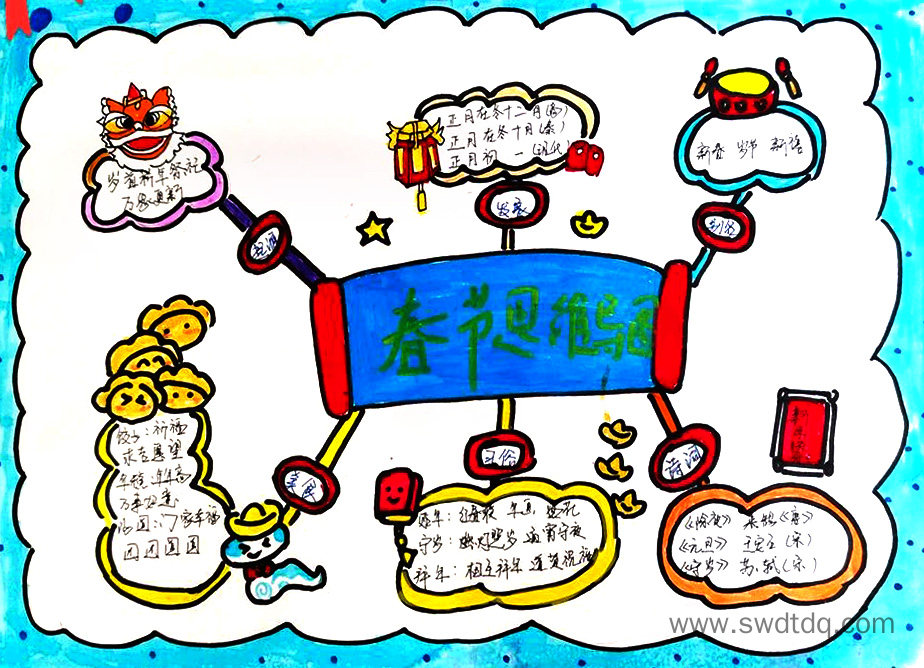 春节思维导图
祝酒
岁首新年祭祀
万象更新
发展
正月在冬十二月(商)
正月在冬十月(秦)
正月初一(现代)
别名
新春 岁节 新禧
美食
饺子:祈福
求吉愿望
年糕:年年高
万事如意
汤圆:门家幸福
团团圆圆
习俗
拜年:
守岁:燃灯照岁 通宵守夜
拜年:相互拜年 道贺祝福
诗词
《除夜》 来鹄《唐》
《元旦》 王安石(宋)
《守岁》 苏轼(宋)
www.swdtdq.com